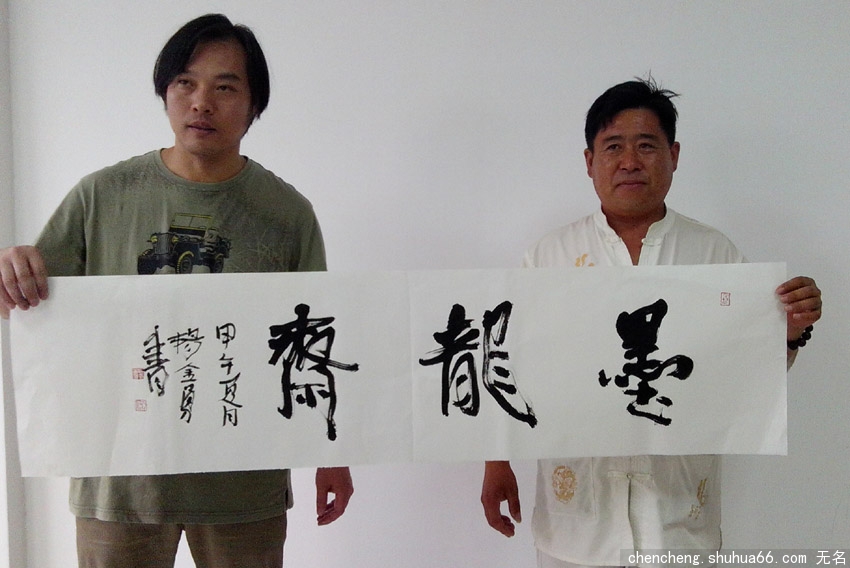 墨龍齋
甲午夏月
楊金勇
書
chencheng.shuhua66.com 无名